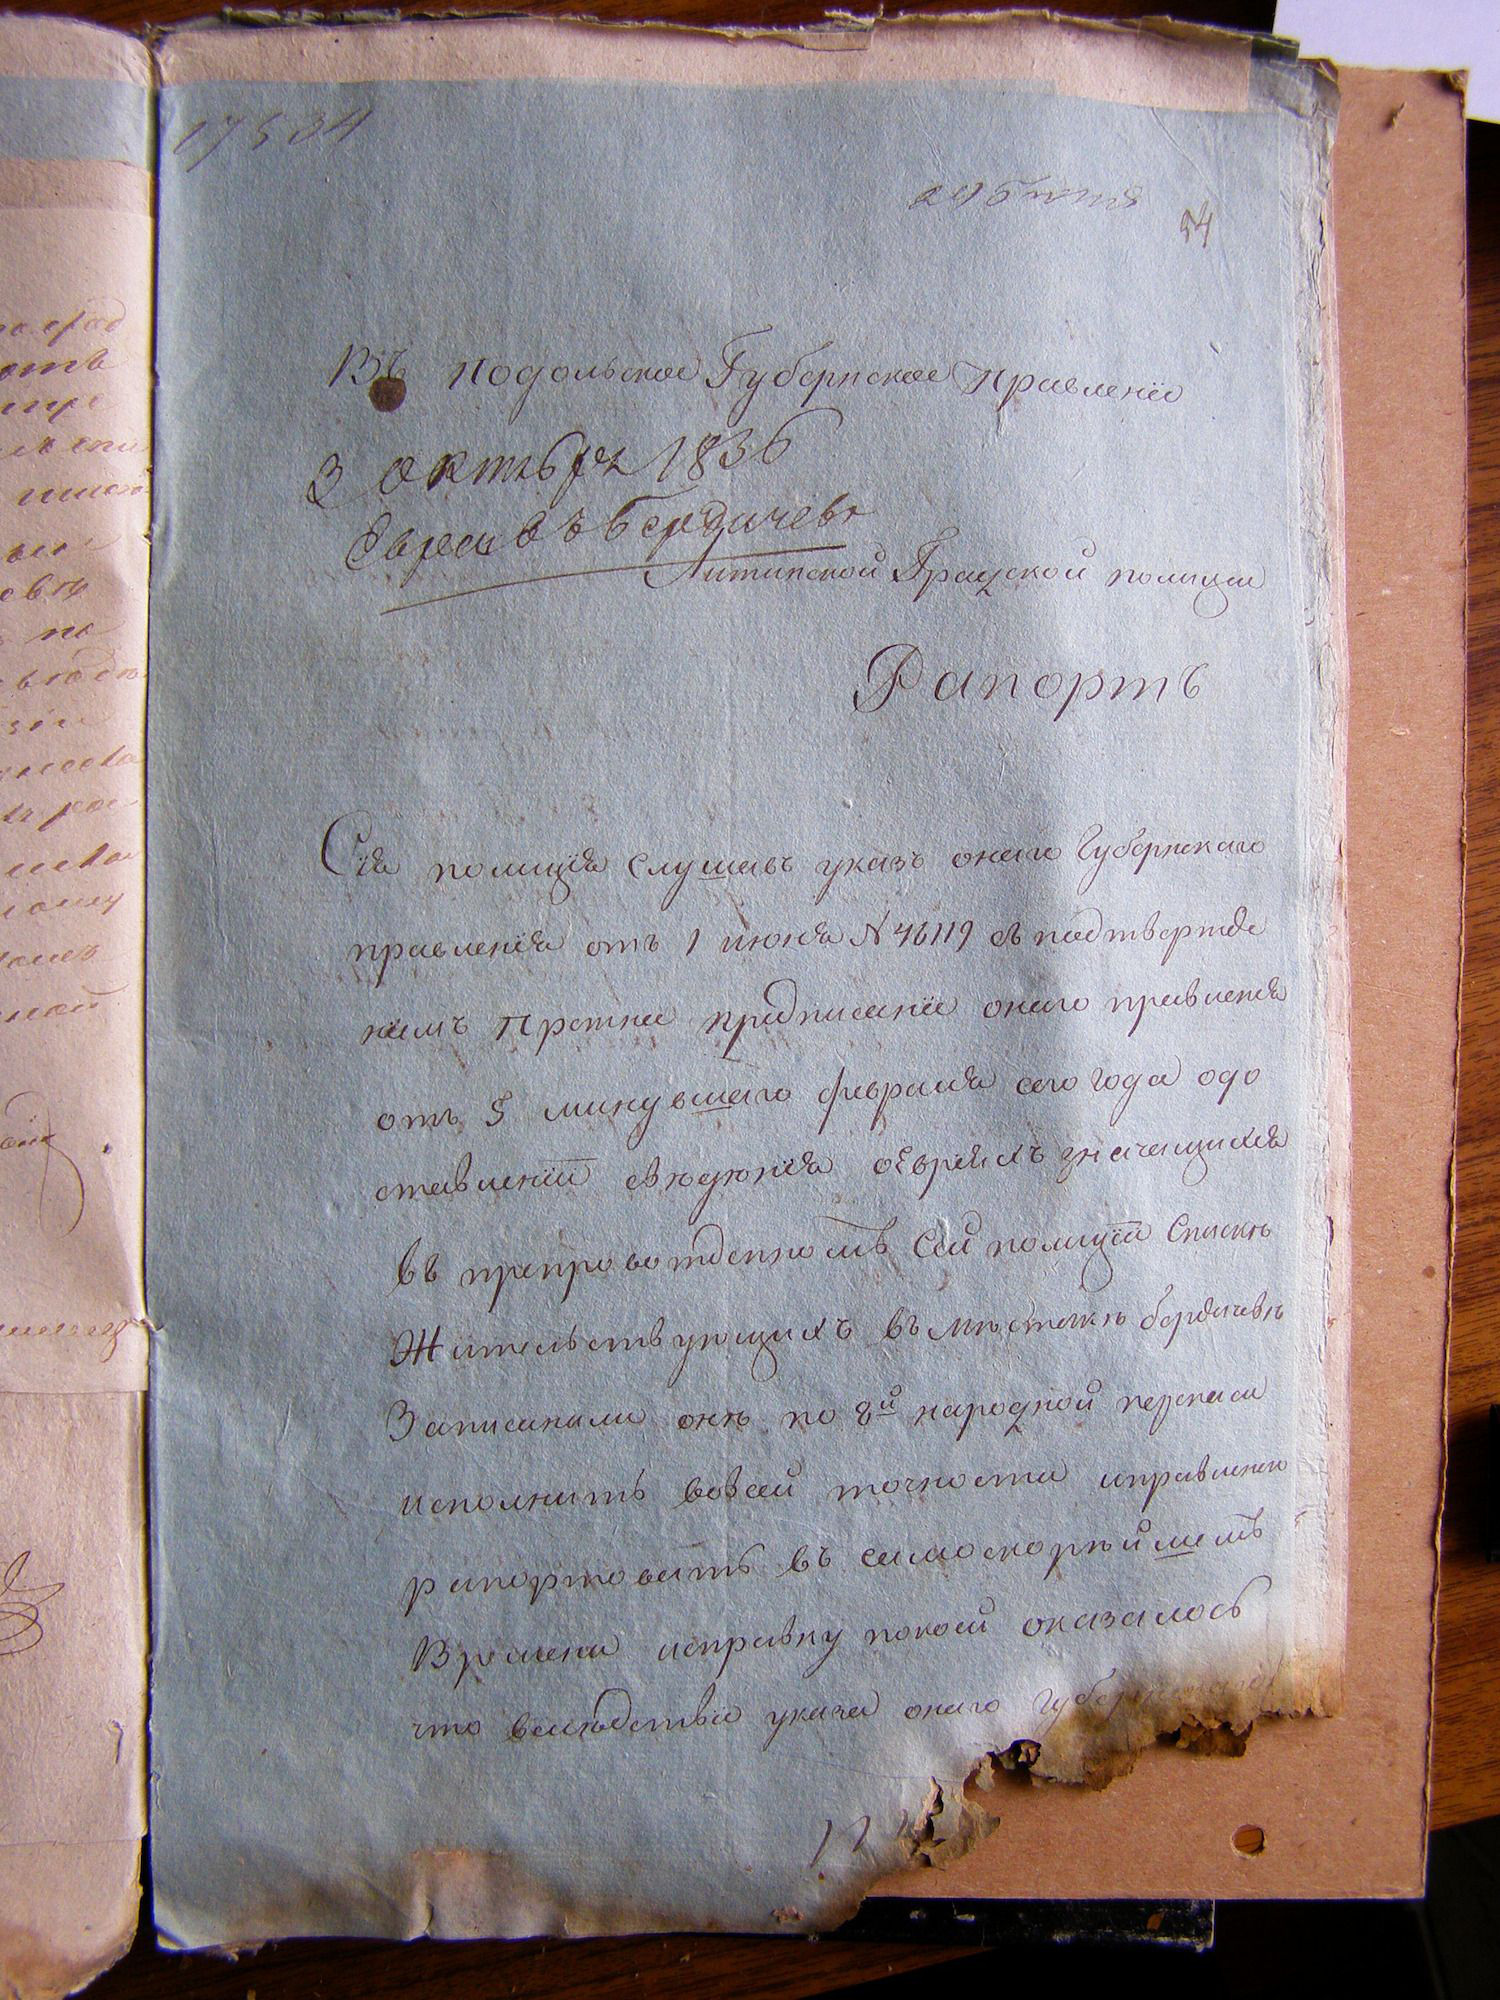 17534
54
Въ Подольское Губернское Правленіе
3 октября 1836
Евреи въ Бердичеве
Литинской Градской полиции
Рапортъ
Сія полиція слушавъ указъ онаго Губернскаго
правленія отъ 1 июня № 46119 съ подтвержде
ніемъ Противу предписаніе онаго правленія
отъ 5 минувшаго февраля сего года одо
ставленіи свѣдѣнія оЕвреяхъ значащихся
въ препровожденномъ сей полиціи Спискѣ
Жительствующихъ въ мѣстечкѣ бердичевѣ
Записанили онѣ по 8й народной переписи
исполнить вовсей точности исправленіи
рапортовать въ самоскорѣйшемъ
Времени исправку покоей оказалось
что вслѣдствіе указа онаго Губернскаго